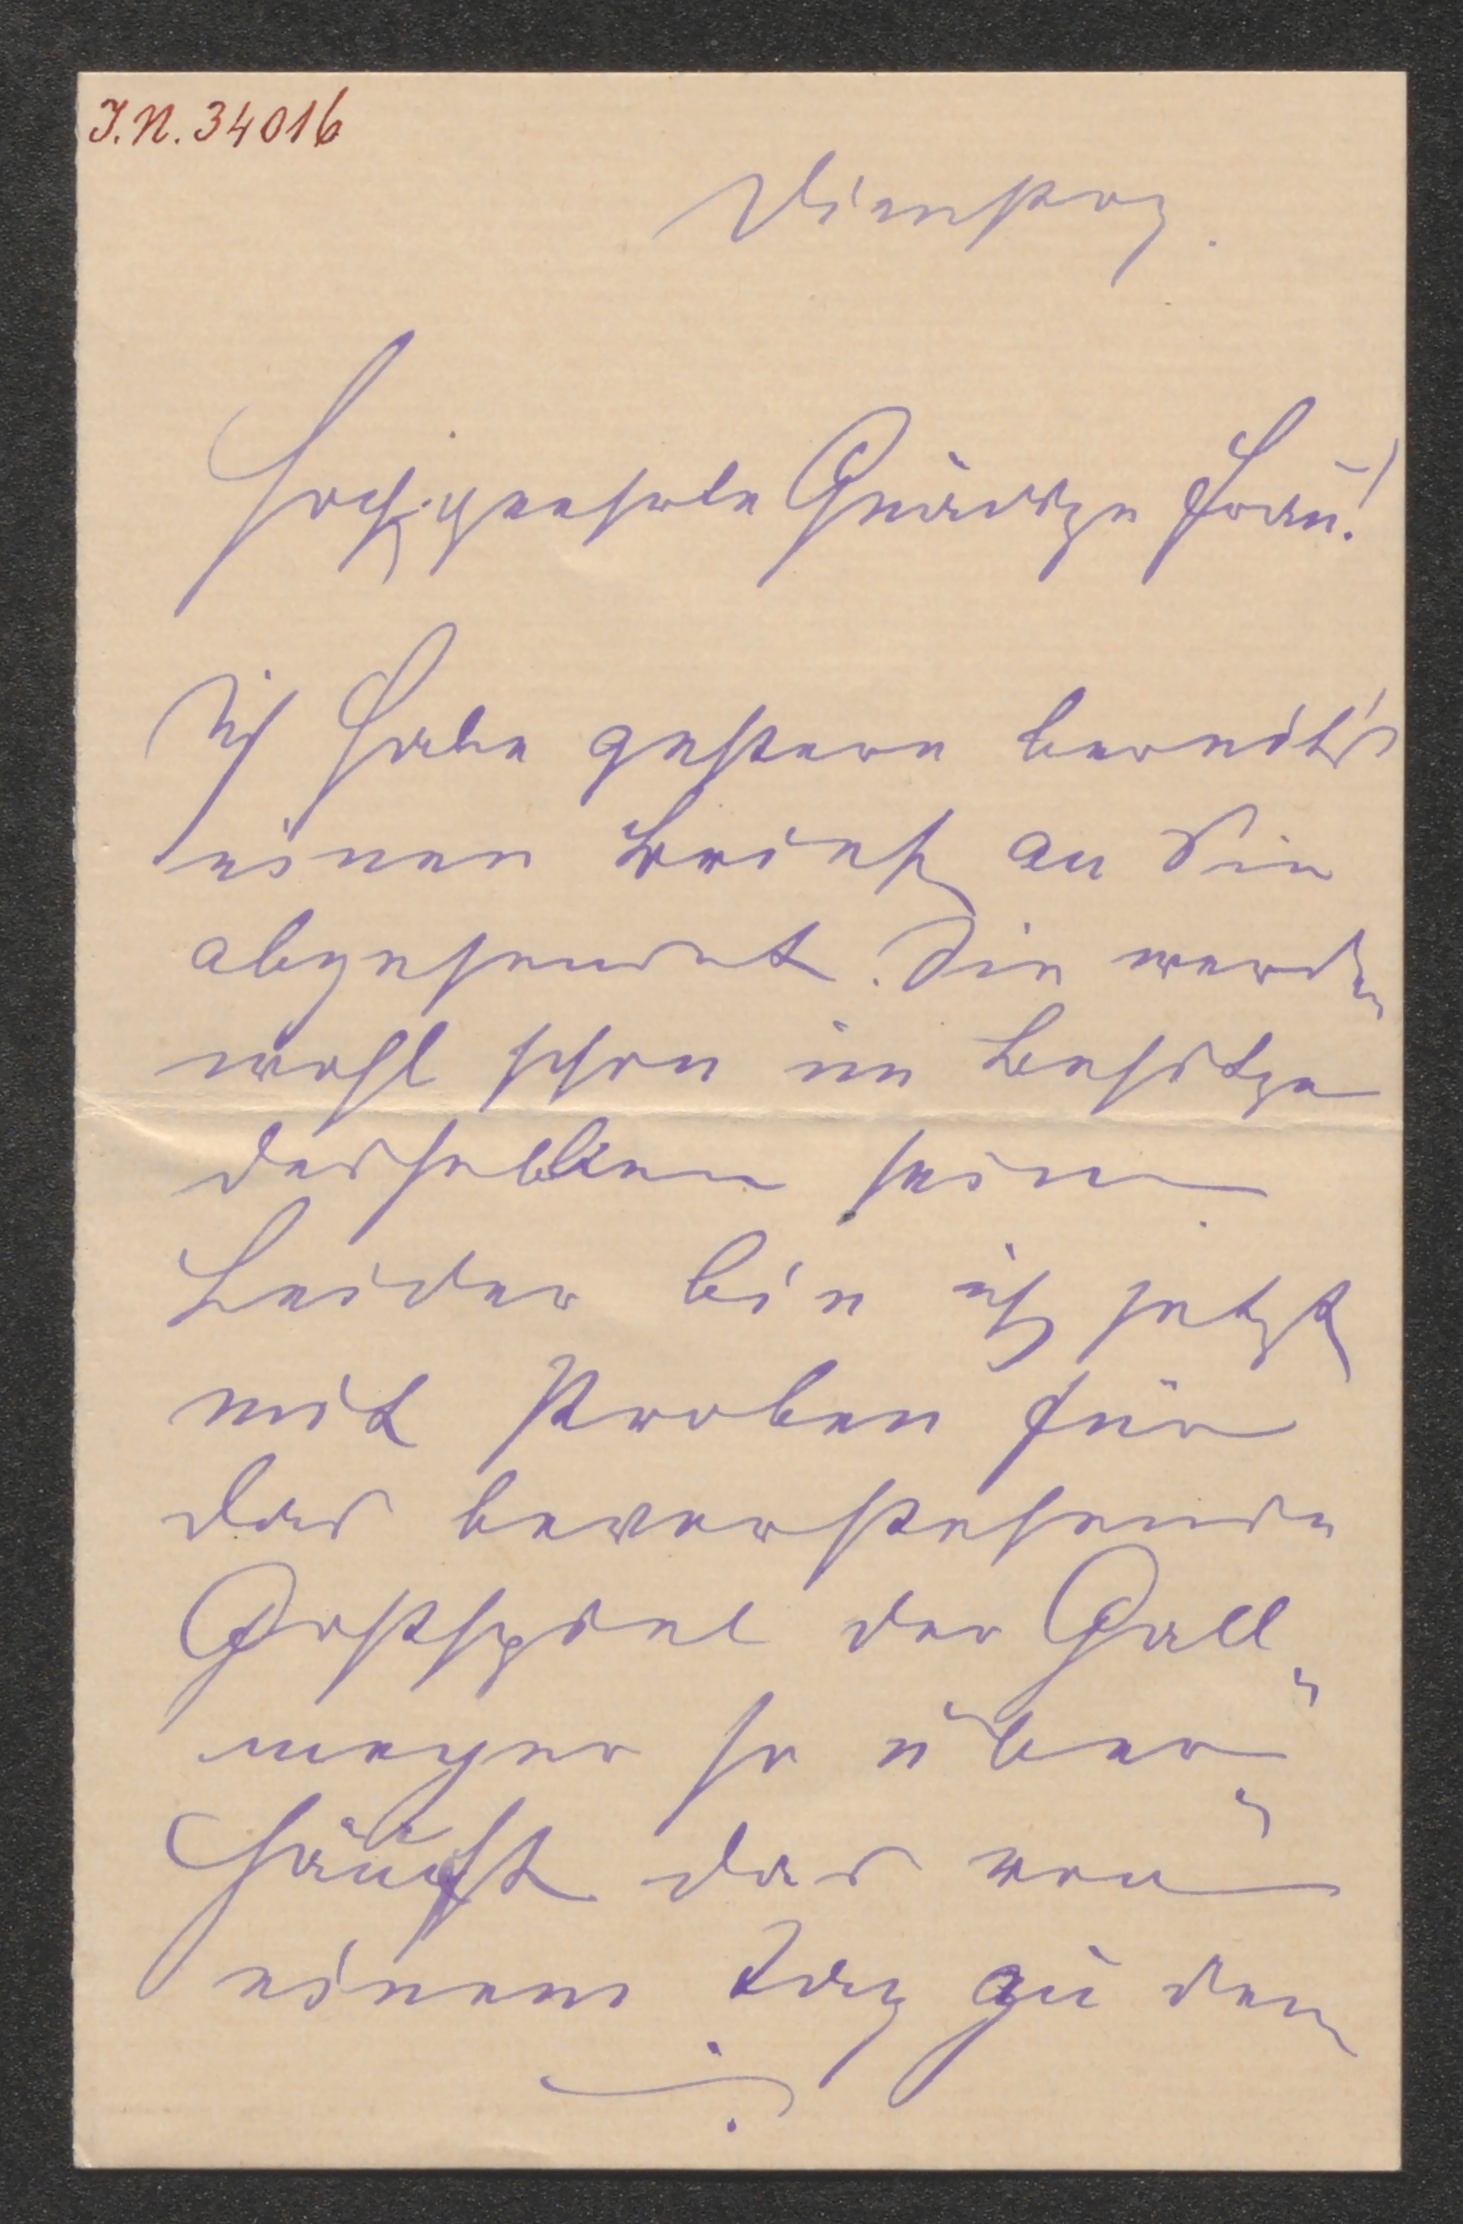 I.N. 34016
Dienstag.
Hochgeehrte Gnädige Frau!
Ich habe gestern bereits
einen Brief an Sie
abgesendet. Sie werden
wohl schon im Besitze
desselben sein.
Leider bin ich jetzt
mit Proben für
das bevorstehende
Gastspiel der Gall-
meyer so über-
häuft das von
einem Tag zu dem